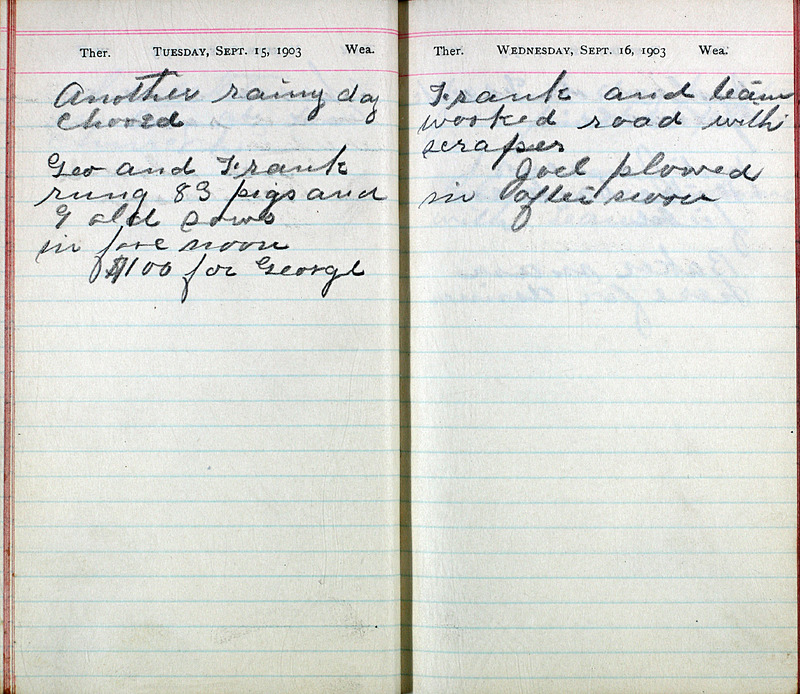 Ther. TUESDAY, SEPT. 15, 1903 Wea.
Another rainy day
chored
Geo and Frank
rung 83 pigs and
9 old sows
in fore noon
$100 for George
Ther. WEDNESDAY, SEPT. 16, 1903 Wea.
Frank and team
worked road with
scraper
Joel plowed
in after noon